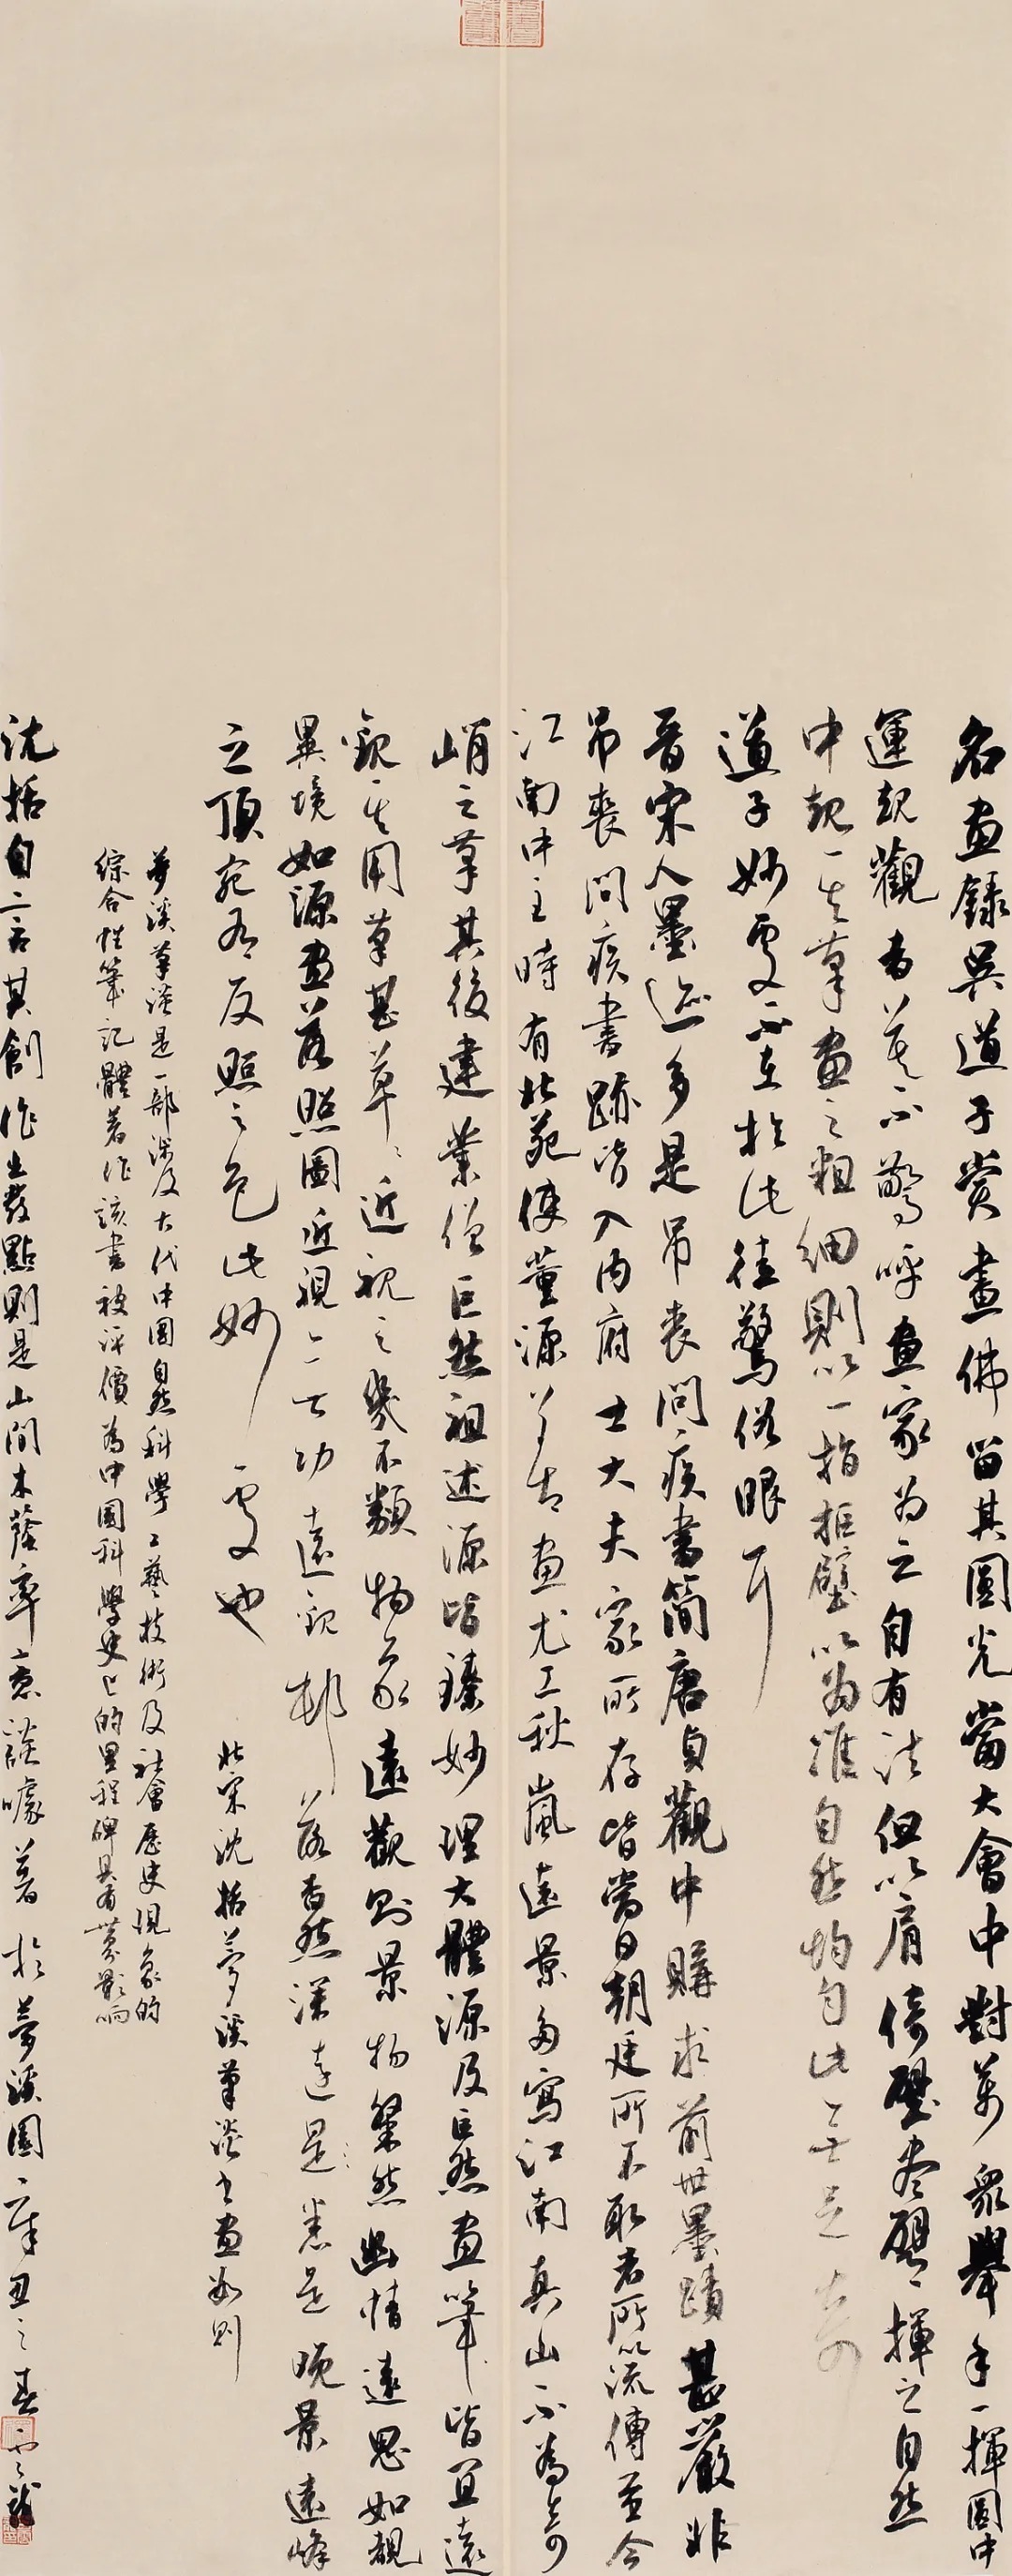 名画錄吳道子賞畫佛留其圓光當大會中對萬眾舉手一揮圓中
運規觀者莫不驚呼画家為之自有法但以肩倚壁盡臂揮之自然
中規其筆画之粗細則以一指拒壁以為准自然均勻此無足奇
道子妙處不在於此徒驚俗眼耳
晉宋人墨迹多是吊喪問疾書簡唐貞觀中購求前世墨蹟甚嚴非
吊喪問疾書跡皆入內府士大夫家所存皆當日朝廷所不取者所以流傳至今
江南中主時有北苑使董源善画尤工秋嵐遠景多寫江南真山不為奇
峭之筆其後建業僧巨然祖述源皆臻妙理大體源及巨然画筆皆宜遠
觀其用筆甚草草近視之幾不類物象遠觀則景物粲然幽情遠思如覩
異境如源画落照圖近視無功遠觀村落杳然深遠悉是晚景遠峰
之頂宛有反照之色此妙處也
北宋沈括夢溪筆談書画數則
夢溪筆談是一部涉及古代中國自然科學工藝技術及社會歷史現象的
綜合性筆記體著作該書被評價為中國科學史上的里程碑具有世界影响
沈括自言其創作出發點則是山間木蔭率意談噱著於夢溪園辛丑之春